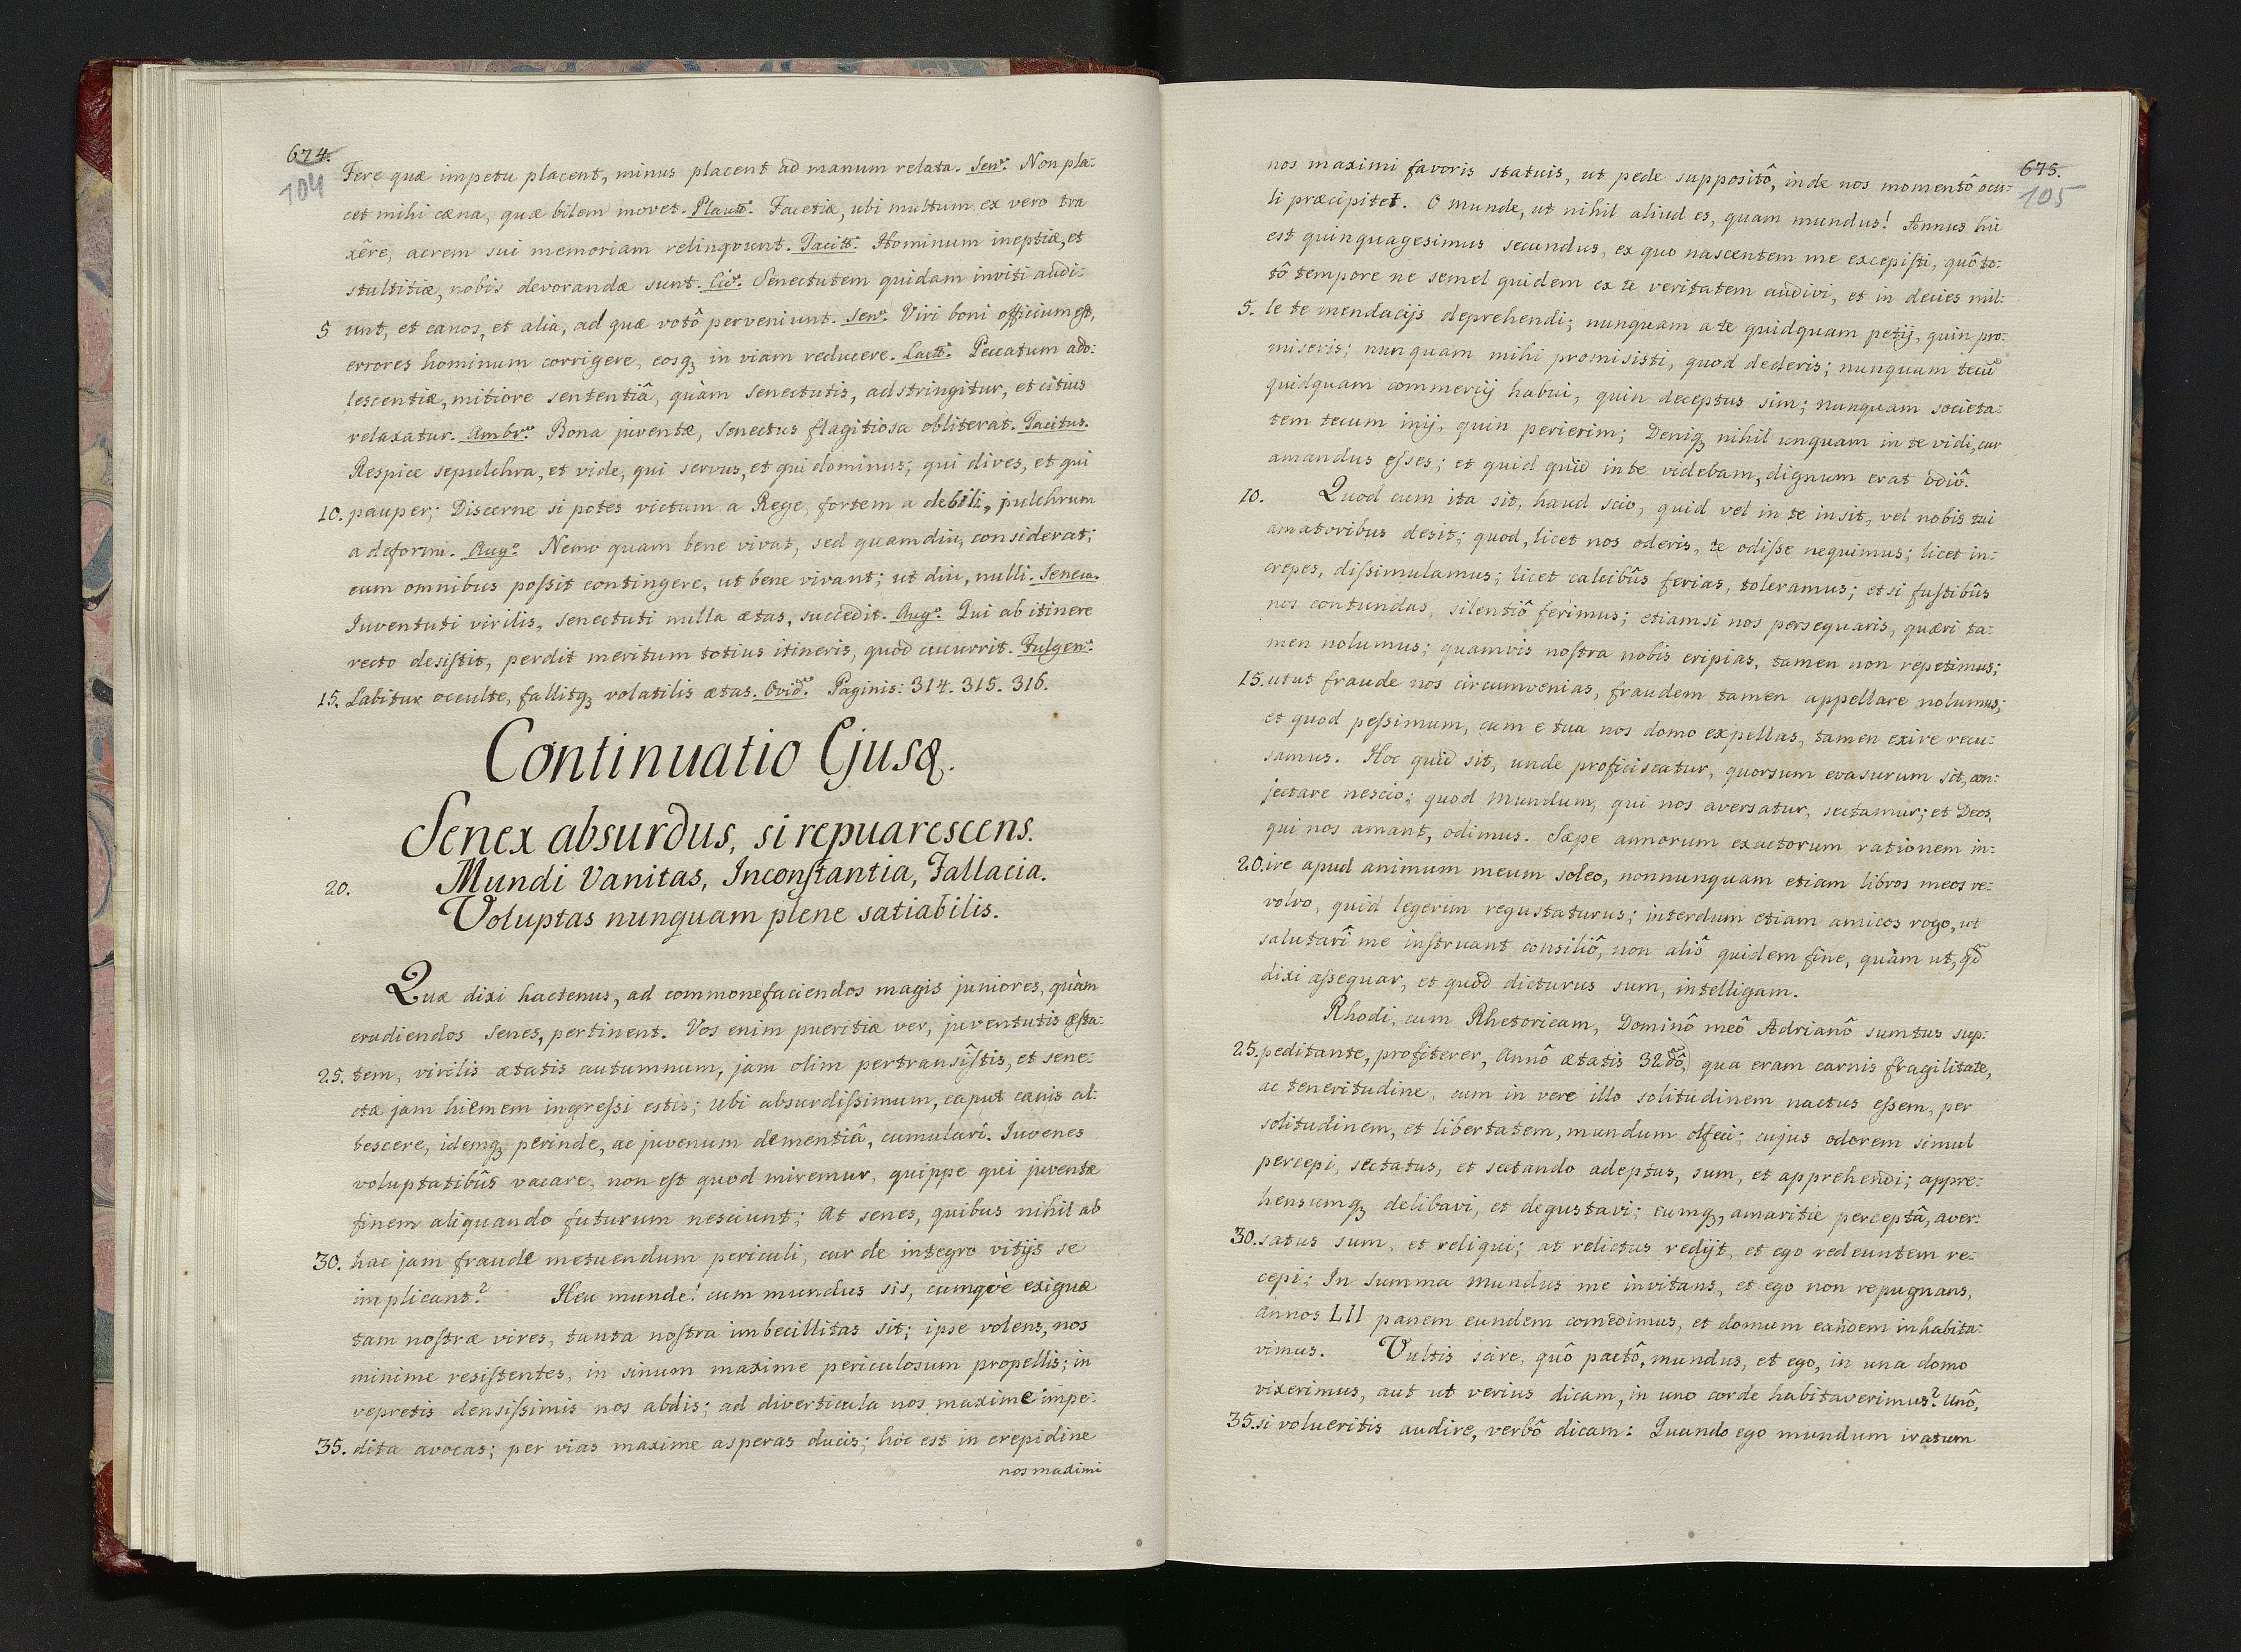 674.
104
Fere quæ impetu placent, minus placent ad manum relata. Senᵃ. Non pla:
cet mihi cæna, quæ bilem movet. Plautᵒ. Facetiæ, ubi multum ex vero tra
xêre, acrem sui memoriam relinqvunt. Tacitᵒ. Hominum ineptiæ, et
stultitiæ, nobis devorandæ sunt. Cicᵒ. Senectutem quidam inviti audi:
5 unt, et canos, et alia, ad quæ votô perveniunt. Senᵃ. Viri boni officium est,
errores hominum corrigere, eosqꝫ in viam reducere. Lactᵒ. Peccatum ado:
lescentiæ, mitiore sententiâ, quàm senectutis, adstringitur, et citius
relaxatur. Ambrᵒ. Bona juventæ, senectus flagitiosa obliterat. Tacitus.
Respice sepulchra, et vide, qui servus, et qui dominus; qui dives, et qui
10. pauper; Discerne si potes victum a Rege, fortem a debili, pulchrum
a deformi. Augᵒ. Nemo quam bene vivat, sed quamdiu, considerat;
cum omnibus possit contingere, ut bene vivant; ut diu, nulli. Seneca.
Iuventuti virilis, senectuti nulla ætas, succedit. Augᵒ. Qui ab itinere
recto desistit, perdit meritum totius itineris, quod cucurrit. Fulgenᵒ.
15. Labitur occulte, fallitqꝫ volatilis ætas. Ovidᵒ. Paginis: 314. 315. 316.
Continuatio Ejusd.
Senex absurdus, si repuarescens.
20. Mundi Vanitas, Inconstantia, Fallacia.
Voluptas nunquam plene satiabilis.
Quæ dixi hactenus, ad commonefaciendos magis juniores, quàm
erudiendos senes, pertinent. Vos enim pueritiæ ver, juventutis æsta:
25. tem, virilis ætatis autumnum, jam olim pertransîstis, et sene:
ctæ jam hiemem ingressi estis; Ubi absurdissimum, caput canis al:
bescere, idemqꝫ perinde, ac juvenum dementiâ, cumulari. Iuvenes
voluptatibûs vacare, non est quod miremur, quippe qui juventæ
finem aliquando futurum nesciunt; At senes, quibus nihil ab
30. hac jam fraude metuendum periculi, cur de integro vitijs se
implicant? Heu munde! cum mundus sis, cumqvè exiguæ
tam nostræ vires, tanta nostra imbecillitas sit; ipse volens, nos
minime resistentes, in sinum maxime periculosum propellis; in
vepretis densissimis nos abdis; ad diverticula nos maxime impe:
35. dita avocas; per vias maxime asperas ducis; hoc est in crepidine
nos maximi
675.
105
nos maximi favoris statuis, ut pede suppositô, inde nos momentô ocu:
li præcipitet. O munde, ut nihil aliud es, quam mundus! Annus hic
est quinquagesimus secundus, ex quo nascentem me excepisti, quô to:
tô tempore ne semel quidem ex te veritatem audivi, et in decies mil:
5. le te mendacijs deprehendi; nunquam a te quidquam petij, quin pro:
miseris; nunquam mihi promisisti, quod dederis; nunquam tecũ
quidquam commercij habui, quin deceptus sim; nunquam societa:
tem tecum inij, quin perierim; Deniqꝫ nihil unquam in te vidi, cur
amandus esses; et quid quid in te videbam, dignum erat odiô.
10. Quod cum ita sit, haud scio, quid vel in te insit, vel nobis tui
amatoribus desit; quod, licet nos oderis, te odisse nequimus; licet in:
crepes, dissimulamus; licet calcibûs ferias, toleramus; etsi fustibûs
nos contundas, silentiô ferimus; etiamsi nos persequaris, quæri ta:
men nolumus; quamvis nostra nobis eripias, tamen non repetimus;
15. utut fraude nos circumvenias, fraudem tamen appellare nolumus;
et quod pessimum, cum e tua nos domo expellas, tamen exire recu:
samus. Hoc quid sit, unde proficiscatur, quorsum evasurum sit, con:
jectare nescio; quod Mundum, qui nos aversatur, sectamur; et Deos,
qui nos amant, odimus. Sæpe annorum exactorum rationem in:
20. ire apud animum meum soleo, nonnunquam etiam libros meos re:
volvo, quid legerim regustaturus; interdum etiam amicos rogo, ut
salutarî me instruant consiliô, non aliô quidem fine, quàm ut, qđ
dixi assequar, et quod dicturus sum, intelligam.
Rhodi, cum Rhetoricam, Dominô meô Adrianô sumtus sup:
25. peditante, profiterer, Annô ætatis 32dô, qua eram carnis fragilitate,
ac teneritudine, cum in vere illo solitudinem nactus essem, per
solitudinem, et libertatem, mundum olfeci; cujus odorem simul
percepi, sectatus, et sectando adeptus, sum, et apprehendi; appre:
hensumqꝫ delibavi, et degustavi; eumqꝫ, amaritie perceptâ, aver:
30. satus sum, et reliqui; at relictus redijt, et ego redeuntem re:
cepi; In summa Mundus me invitans, et ego non repugnans,
annos LII panem eundem comedimus, et domum eandem inhabita:
vimus. Vultis scire, quô pactô, mundus, et ego, in una domo
vixerimus, aut ut verius dicam, in uno corde habitaverimus? Unô,
35. si volueritis audire, verbô dicam: Quando ego mundum iratum